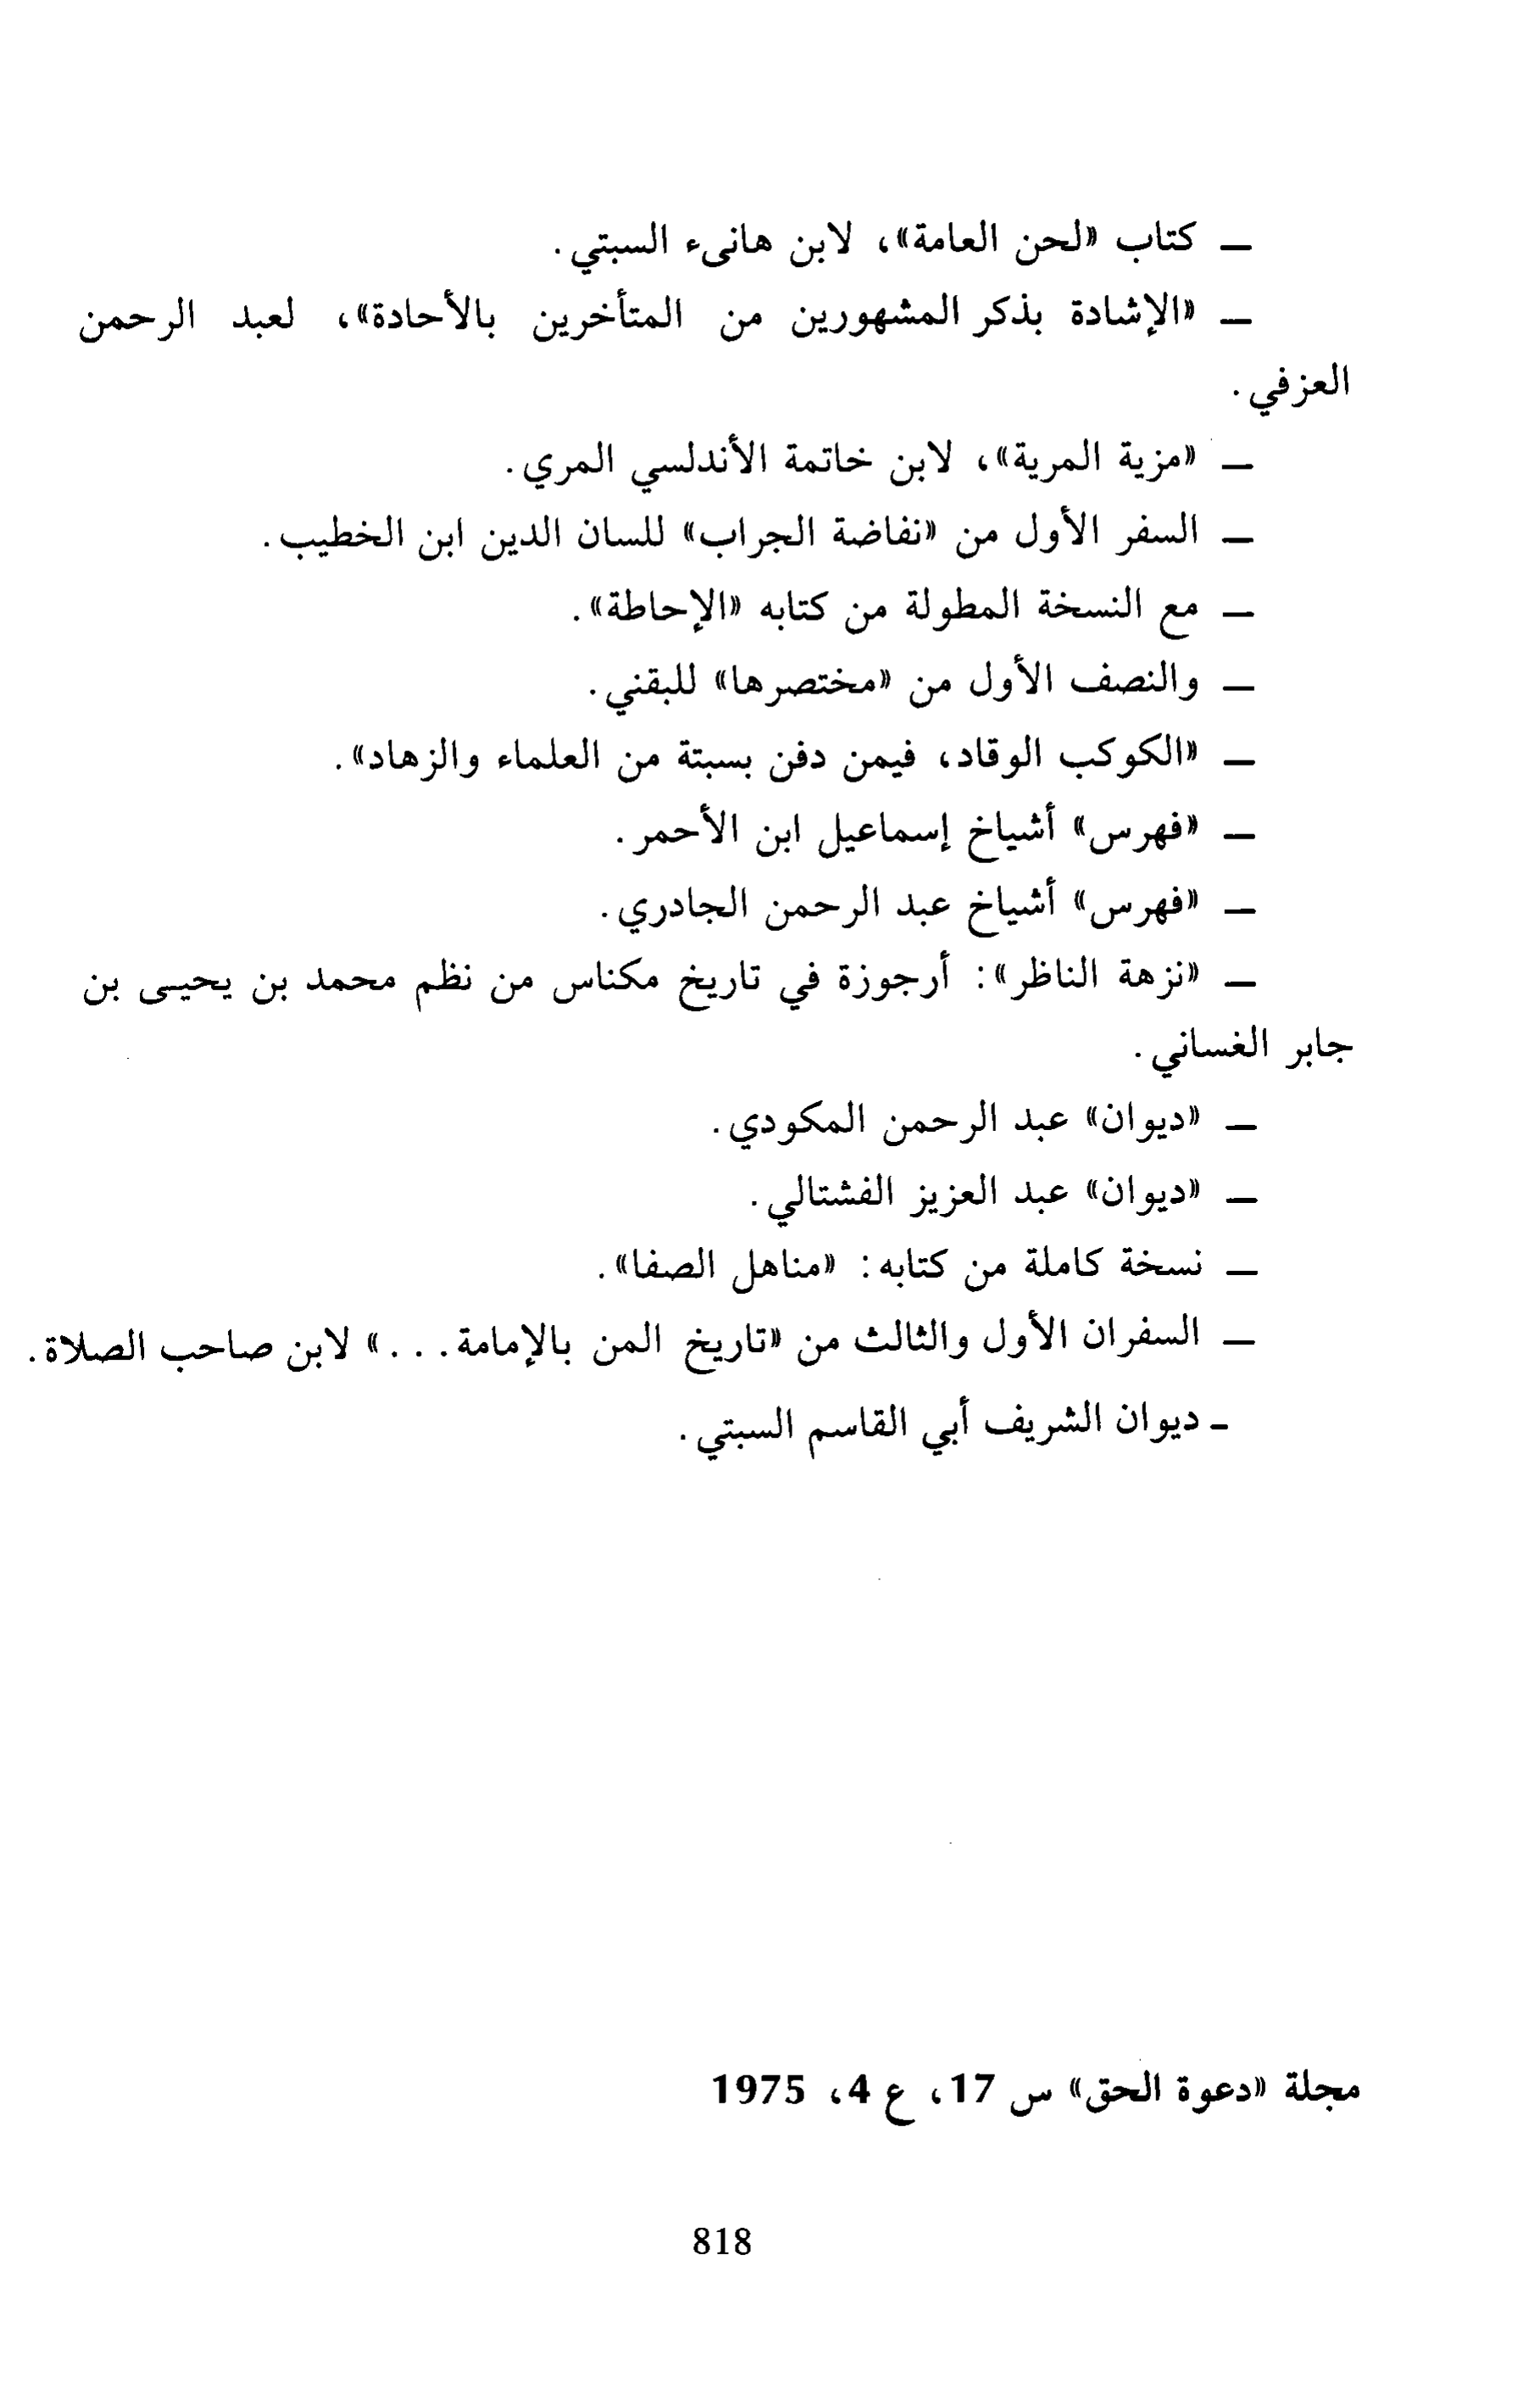 — كتاب «لحن العامة»، لابن هانىء السبتي.
— «الإشادة بذكر المشهورين من المتأخرين بالأحادة»، لعبد الرحمن
العزفي.
— «مزية المرية»، لابن خاتمة الأندلسي المري.
— السفر الأول من «نفاضة الجراب» للسان الدين ابن الخطيب.
— مع النسخة المطولة من كتابه «الإحاطة».
— والنصف الأول من «مختصرها» للبقني.
— «الكوكب الوقاد، فيمن دفن بسبتة من العلماء والزهاد».
— «فهرس» أشياخ إسماعيل ابن الأحمر.
— «فهرس» أشياخ عبد الرحمن الجادري.
— «نزهة الناظر»: أرجوزة في تاريخ مكناس من نظم محمد بن يحيى بن
جابر الغساني.
— «ديوان» عبد الرحمن المكودي.
— «ديوان» عبد العزيز الفشتالي.
— نسخة كاملة من كتابه: «مناهل الصفا».
— السفران الأول والثالث من «تاريخ المن بالإمامة...» لابن صاحب الصلاة.
- ديوان الشريف أبي القاسم السبتي.
مجلة «دعوة الحق» س 17، ع 4، 1975
818